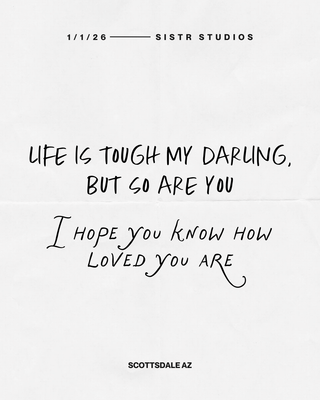 1/1/26 SISTR STUDIOS
LIFE IS TOUGH MY DARLING,
BUT SO ARE YOU
I HOPE YOU KNOW HOW
LOVED YOU ARE
SCOTTSDALE AZ